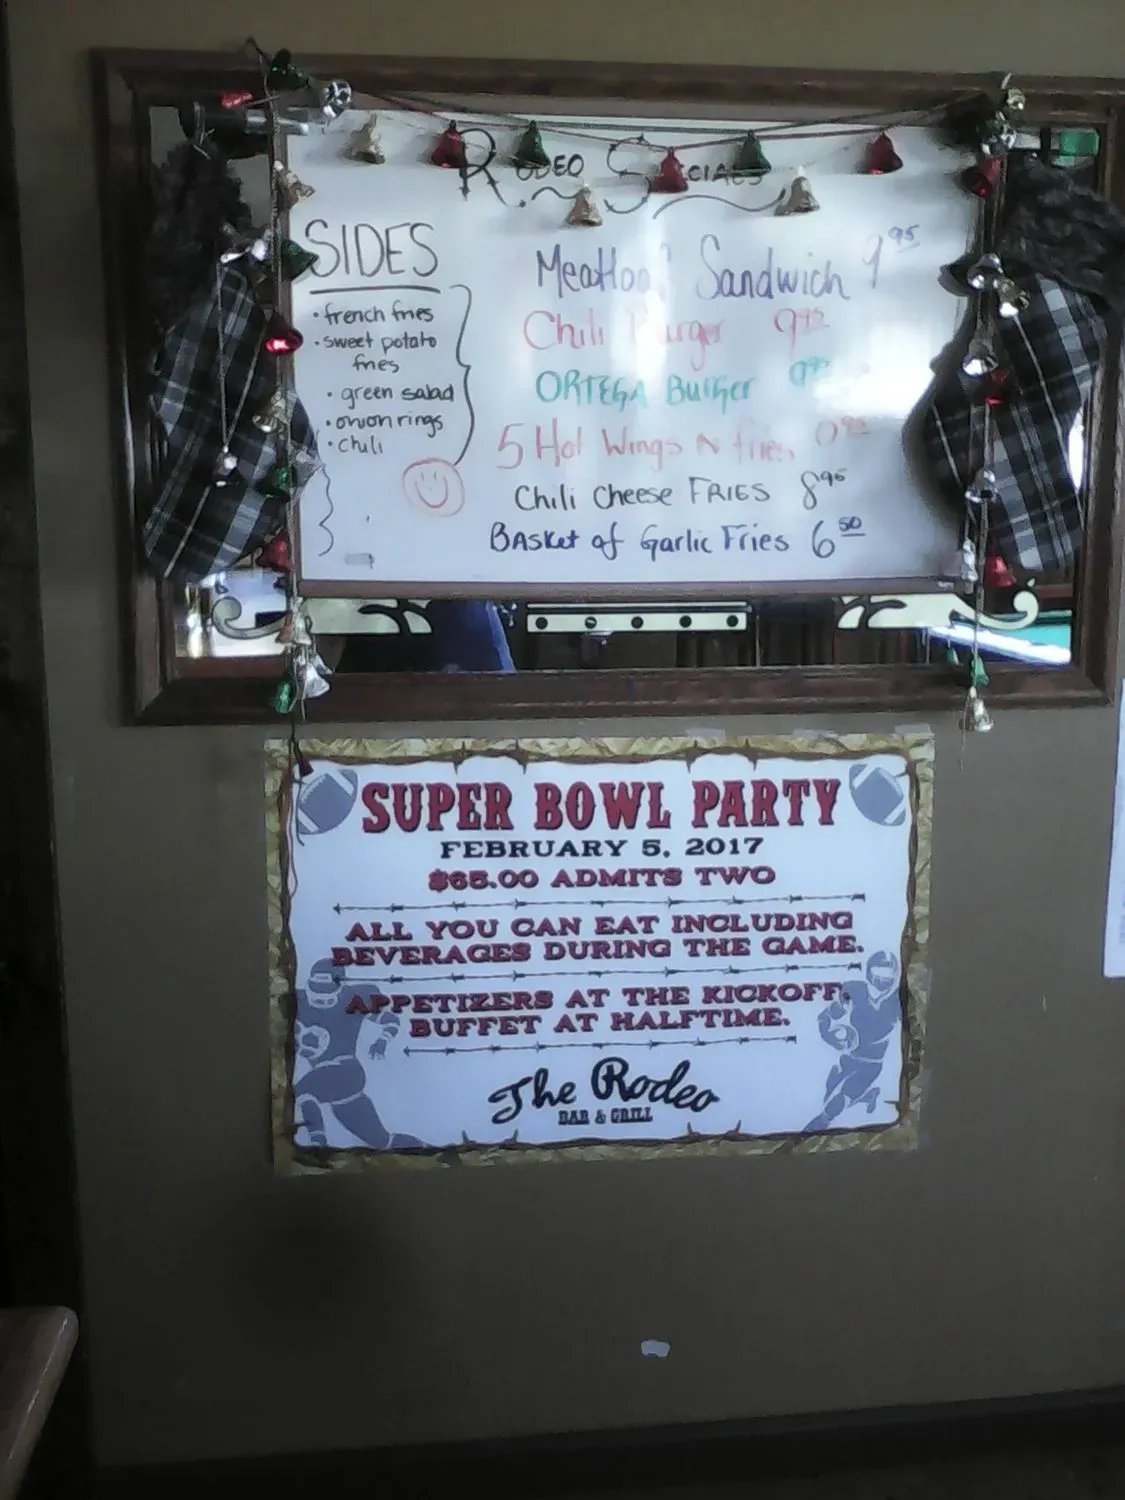 RODEO SPECIALS
SIDES
• french fries
• sweet potato
fries
• green salad
• onion rings
• chili
Meatloaf Sandwich 9 95
Chili Burger 9 95
ORTEGA Burger 9 95
5 Hot Wings N fries
Chili Cheese FRIES 8 95
Basket of Garlic Fries 6 50
SUPER BOWL PARTY
FEBRUARY 5, 2017
$65.00 ADMITS TWO
ALL YOU CAN EAT INCLUDING
BEVERAGES DURING THE GAME.
APPETIZERS AT THE KICKOFF,
BUFFET AT HALFTIME.
The Rodeo
BAR & GRILL